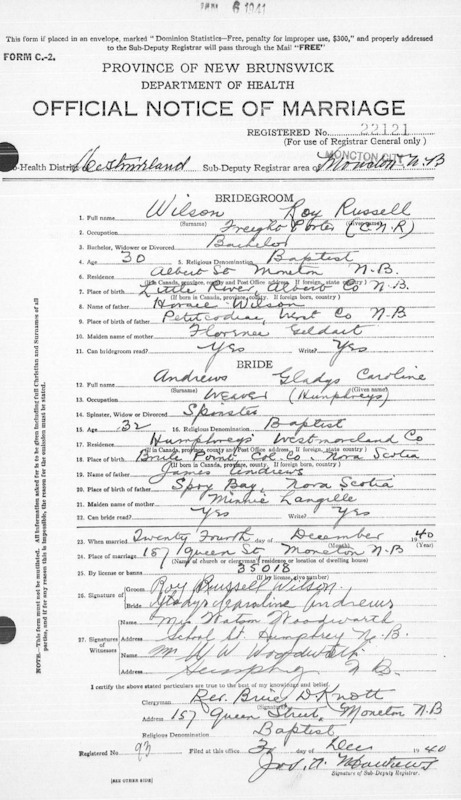 JAN 6 1941
This form if placed in an envelope, marked "Dominion Statistics—Free, penalty for improper use, $300," and properly addressed
to the Sub-Deputy Registrar will pass through the Mail "FREE"
FORM C.-2.
PROVINCE OF NEW BRUNSWICK
DEPARTMENT OF HEALTH
OFFICIAL NOTICE OF MARRIAGE
REGISTERED No. 22121
(For use of Registrar General only)
MONCTON CITY
Sub-Health District Westmorland Sub-Deputy Registrar area of Moncton N.B
BRIDEGROOM
1. Full name Wilson Roy Russell
(Surname) (Given name)
2. Occupation Freight Porter (C.N.R)
3. Bachelor, Widower or Divorced Bachelor
4. Age 30 5. Religious Denomination Baptist
6. Residence Albert St Moncton N.B.
(If in Canada, province, county and Post Office address. If foreign born, state, country)
7. Place of birth Little River, Albert Co N.B
(If born in Canada, province, county. If foreign born, country)
8. Name of father Horace Wilson
9. Place of birth of father Petitcodiac, West Co N.B
10. Maiden name of mother Florence Geldart
11. Can bridegroom read? Yes Write? Yes
BRIDE
12. Full name Andrews Gladys Caroline
(Surname) (Given name)
13. Occupation Weaver (Humphreys)
14. Spinster, Widow or Divorced Spinster
15. Age 32 16. Religious Denomination Baptist
17. Residence Humphreys Westmorland Co
18. Place of birth Brule Point Col. Co. Nova Scotia
(If born in Canada, province, county. If foreign born, country)
19. Name of father James Andrews
20. Place of birth of father Spry Bay, Nova Scotia
21. Maiden name of mother Minnie Langille
22. Can bride read? Yes Write? Yes
23. When married Twenty Fourth day of December 1940
(Year)
24. Place of marriage 157 Queen St. Moncton N-B
(Name of church or clergyman's residence or location of dwelling house)
25. By license or banns 35018
(If by license, give number)
26. Signature of Groom Roy Russell Wilson
Bride Gladys Caroline Andrews
27. Signatures of Witnesses
Name Mrs Watson Woodworth
Address School St Humphrey N.B.
Name Mr W W Woodworth
Address Humphrey N B.
I certify the above stated particulars are true to the best of my knowledge and belief.
Clergyman Rev. Brice D Knott
(Signature)
Address 157 Queen Street, Moncton N.B
Religious Denomination Baptist
Registered No. 93 Filed at this office day of Dec 1940
Signature of Sub-Deputy Registrar.
[SEE OTHER SIDE]
NOTE.—This form must not be mutilated. All information asked for is to be given including full Christian and Surnames of all
parties, and if for any reason this is impossible, the reason for the omission must be stated.